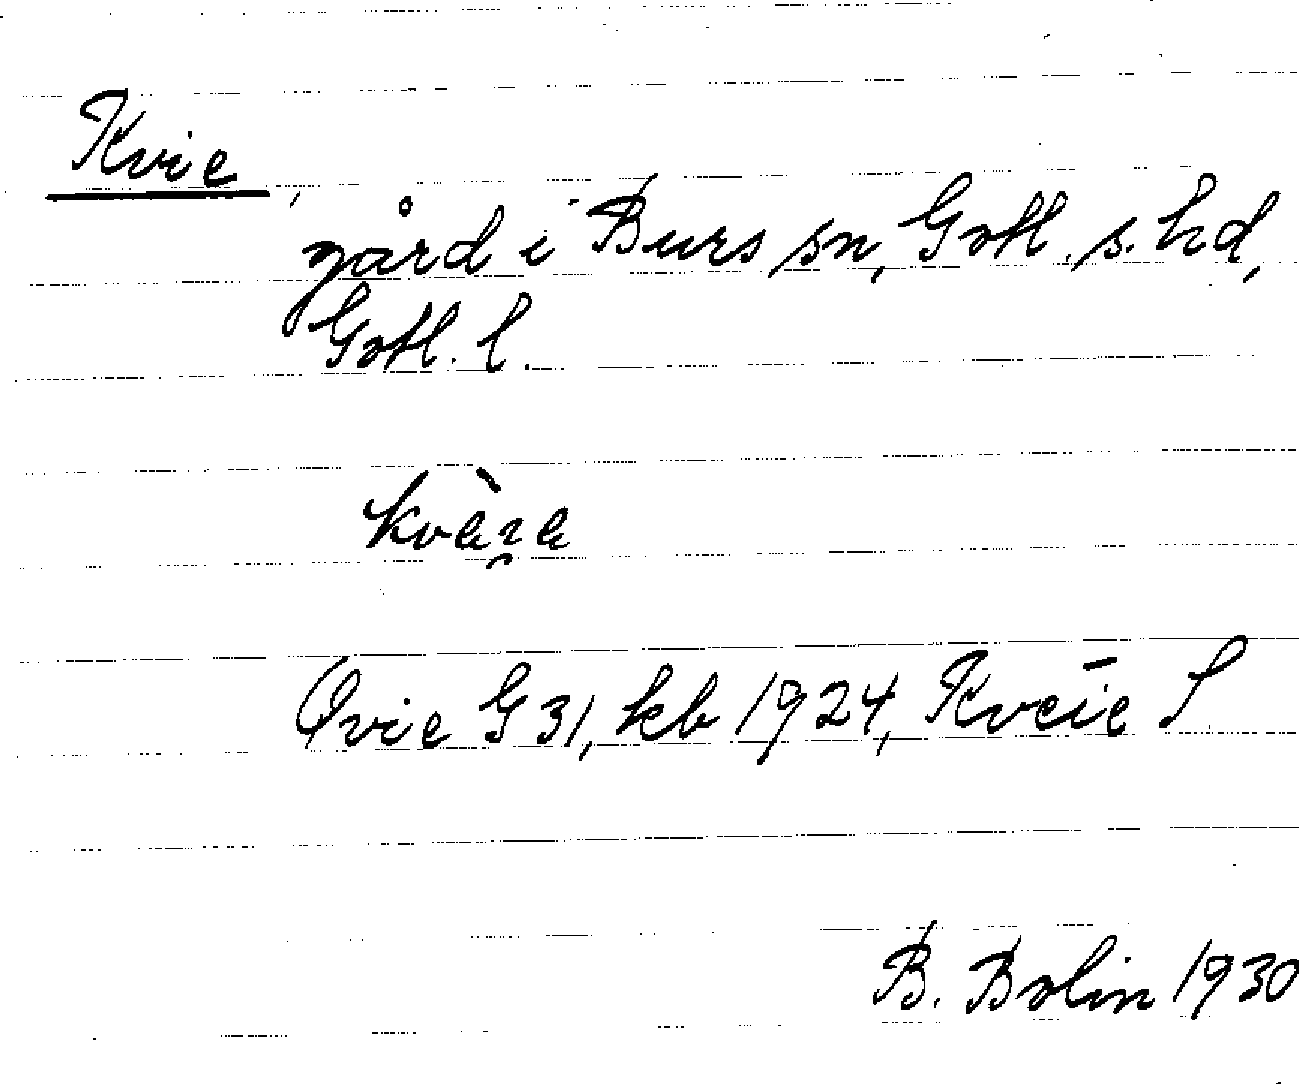 Kvie,
gård i Burs sn, Gotl. s. hd,
Gotl. l.
Qvie G 31, kb 1924, Kveīe S
B. Bolin 1930